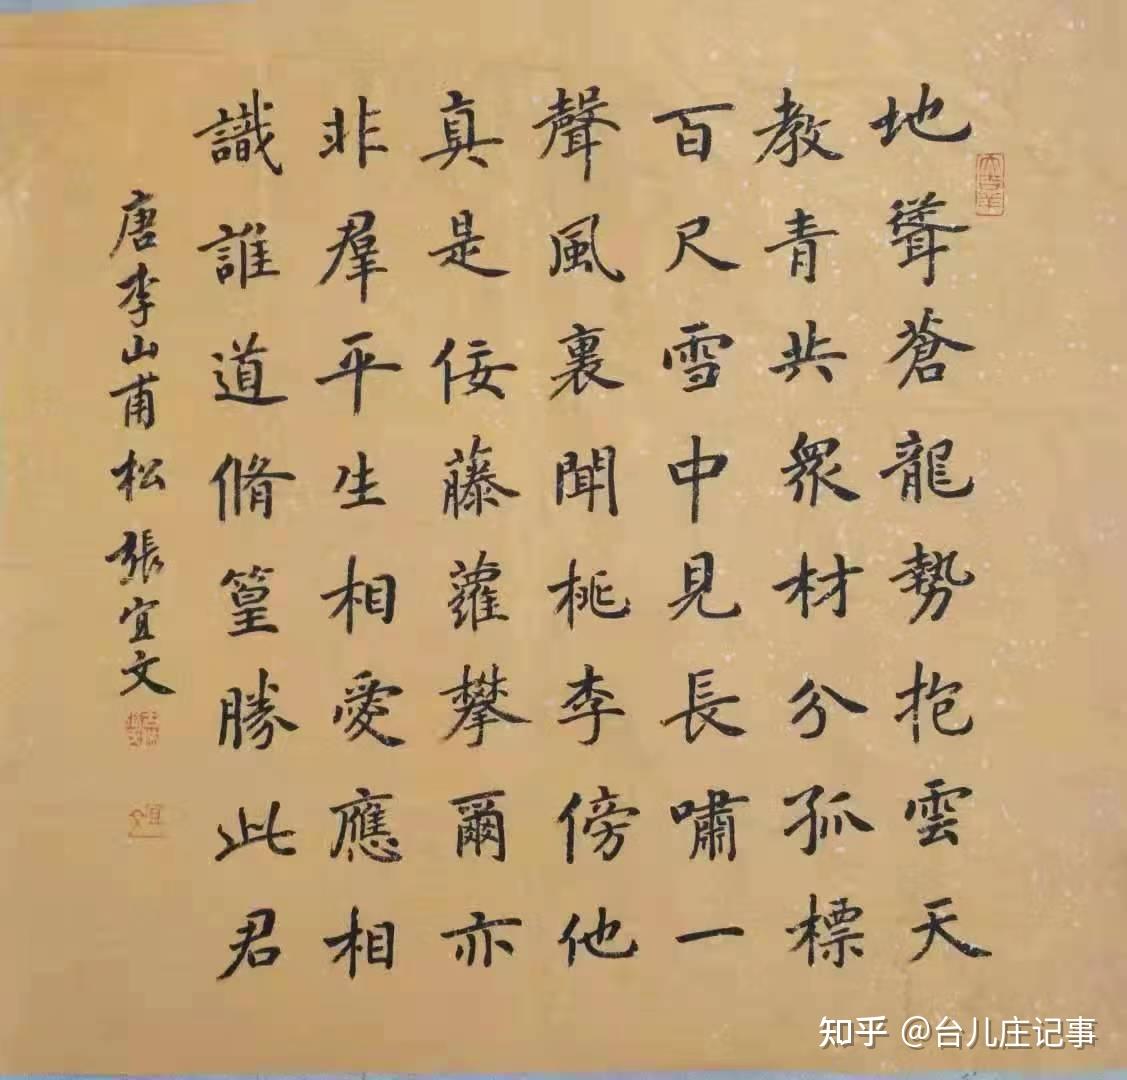 地聳蒼龍勢抱雲天
教青共衆材分孤標
百尺雪中見長嘯一
聲風裏聞桃李傍他
真是佞藤蘿攀爾亦
非羣平生相愛應相
識誰道脩篁勝此君
唐李山甫松張宜文
大吉羊
知乎 @台儿庄记事